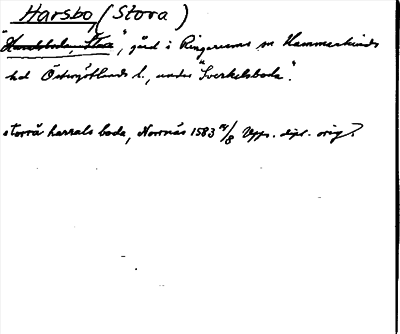 Harsbo (Stora)
"Haralsboda, Stora", gård i Ringarums sn Hammarkinds
hd Östergötlands l., under "Sverkelsboda".
storrå harrals boda, Norrnäs 1583 11/8 Upps. dipl. orig.